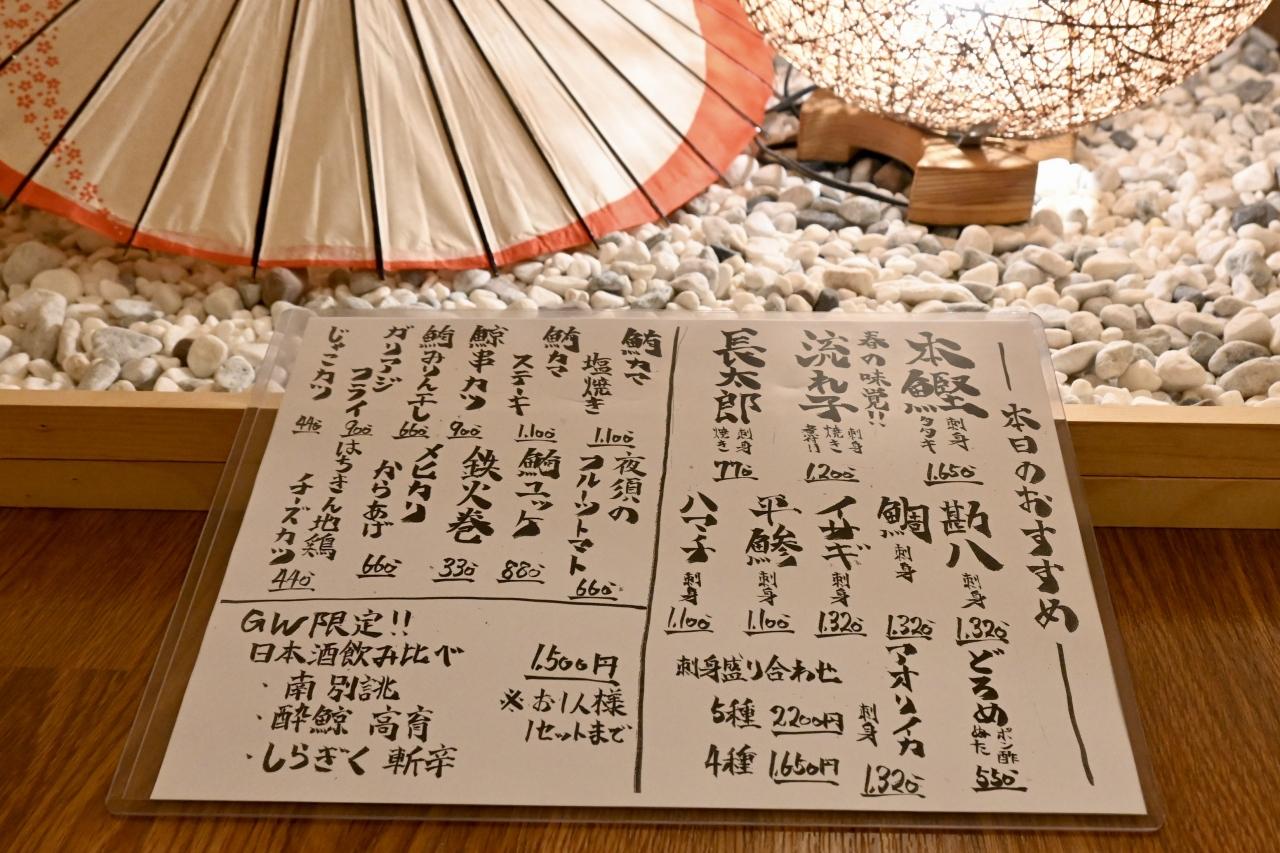 本日のおすすめ
本鰹 刺身 タタキ 1.650
春の味覚!!
流れ子 刺身 焼き 煮付け 1.200
長太郎 刺身 焼き 770
勘八 刺身 1.320
鯛 刺身 1.320
イサギ 刺身 1.320
平鯵 刺身 1.100
ハマチ 刺身 1.100
どろめ ポン酢 ぬた 550
アオリイカ 刺身 1.320
刺身盛り合わせ
5種 2200円
4種 1.650円
鮪カマ塩焼き 1.100
鮪カマステーキ 1.100
鯨串カツ 900
鮪みりん干し 660
ガリアージフライ 900
じゃこカツ 440
夜須のフルーツトマト 660
鮪ユッケ 880
鉄火巻 330
メヒカリからあげ 660
はちきん地鶏チーズカツ 440
GW限定!!
日本酒飲み比べ 1.500円
・南 別誂
・酔鯨 高育
・しらぎく 斬辛
※お1人様
1セットまで